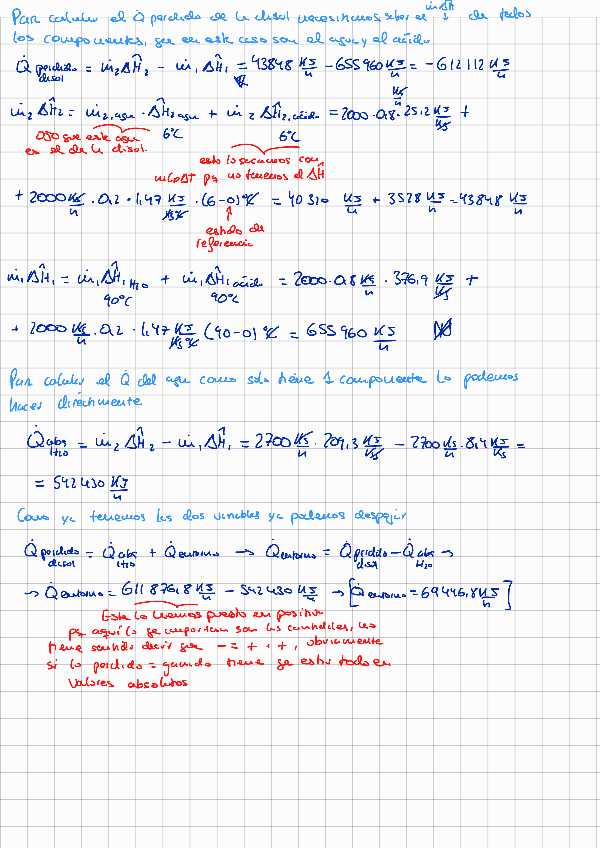 Para calcular el Q̇ perdido de la disol necesitamos saber el ṁΔĤ ↓ de todos
los componentes, que en este caso son el agua y el ácido
Q̇ perdido disol = ṁ₂ΔĤ₂ − ṁ₁ΔĤ₁ = 43848 KJ/h − 655960 KJ/h = −612112 KJ/h
ṁ₂ΔĤ₂ = ṁ₂,agua · ΔĤ₂ agua + ṁ₂ΔĤ₂,ácido = 2000 · 0,8 · Kg/h 25,2 KJ/Kg +
6ºC 6ºC
OJO que este agua
es el de la disol.
esto lo sacamos con
mCpΔT pq no tenemos el ΔĤ
+ 2000 Kg/h · 0,2 · 1,47 KJ/KgºC · (6−0)ºC = 40320 KJ/h + 3528 KJ/h = 43848 KJ/h
↑
estado de
referencia
ṁ₁ΔĤ₁ = ṁ₁ΔĤ₁ H₂O + ṁ₁ΔĤ₁ ácido = 2000 · 0,8 Kg/h · 376,9 KJ/Kg +
90ºC 90ºC
+ 2000 Kg/h · 0,2 · 1,47 KJ/KgºC (90−0)ºC = 655960 KJ/h
Para calcular el Q̇ del agua como solo tiene 1 componente lo podemos
hacer directamente
Q̇abs H₂O = ṁ₂ΔĤ₂ − ṁ₁ΔĤ₁ = 2700 Kg/h · 209,3 KJ/Kg − 2700 Kg/h · 8,4 KJ/Kg =
= 542430 KJ/h
Como ya tenemos las dos variables ya podemos despejar
Q̇ perdido disol = Q̇abs H₂O + Q̇entorno → Q̇entorno = Q̇perdido disol − Q̇abs H₂O →
→ Q̇entorno = 611876,8 KJ/h − 542430 KJ/h → [Q̇entorno = 69446,8 KJ/h]
Este lo hemos puesto en positivo
pq aquí lo que importan son las cantidades, no
tiene sentido decir que − = + · +, obviamente
si lo perdido = ganado tiene que estar todo en
valores absolutos